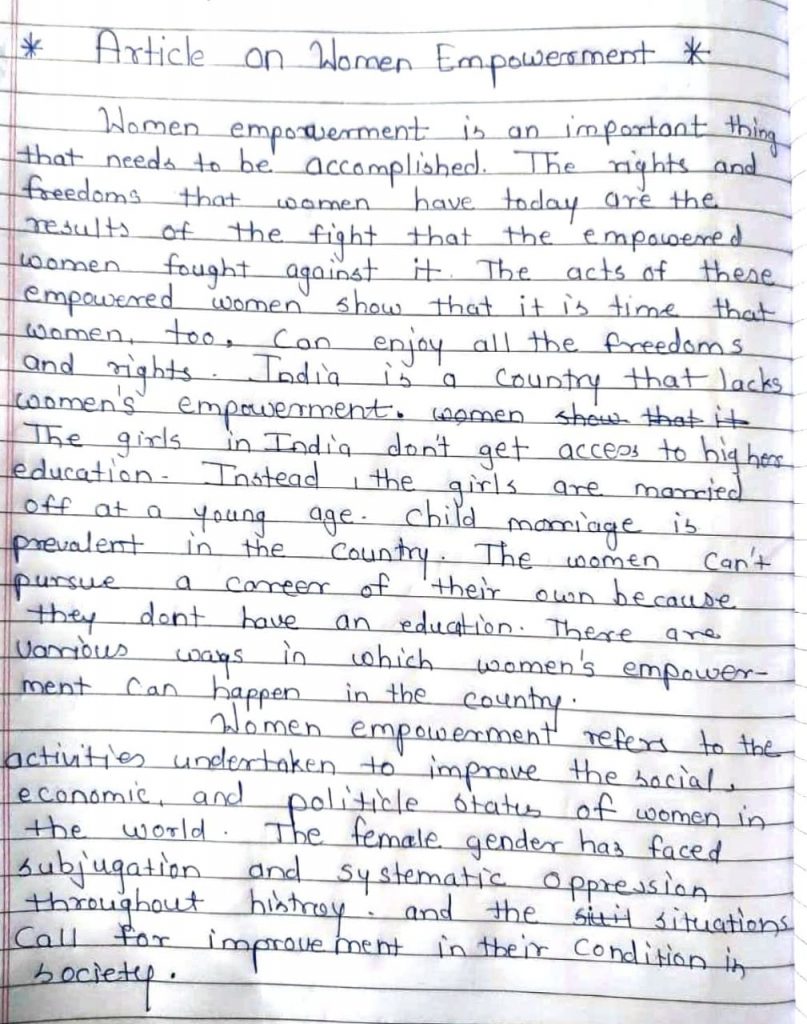 * Article on Women Empowerment *
Women empowerment is an important thing
that needs to be accomplished. The rights and
freedoms that women have today are the
results of the fight that the empowered
women fought against it. The acts of these
empowered women show that it is time that
women, too, can enjoy all the freedoms
and rights. India is a country that lacks
women's empowerment. women show that it
The girls in India don't get access to higher
education. Instead, the girls are married
off at a young age. Child marriage is
prevalent in the country. The women can't
pursue a career of their own because
they dont have an education. There are
various ways in which women's empower-
ment can happen in the country.
Women empowerment refers to the
activities undertaken to improve the social,
economic, and politicle status of women in
the world. The female gender has faced
subjugation and systematic oppression
throughout histroy. and the situations
Call for improvement in their condition in
society.